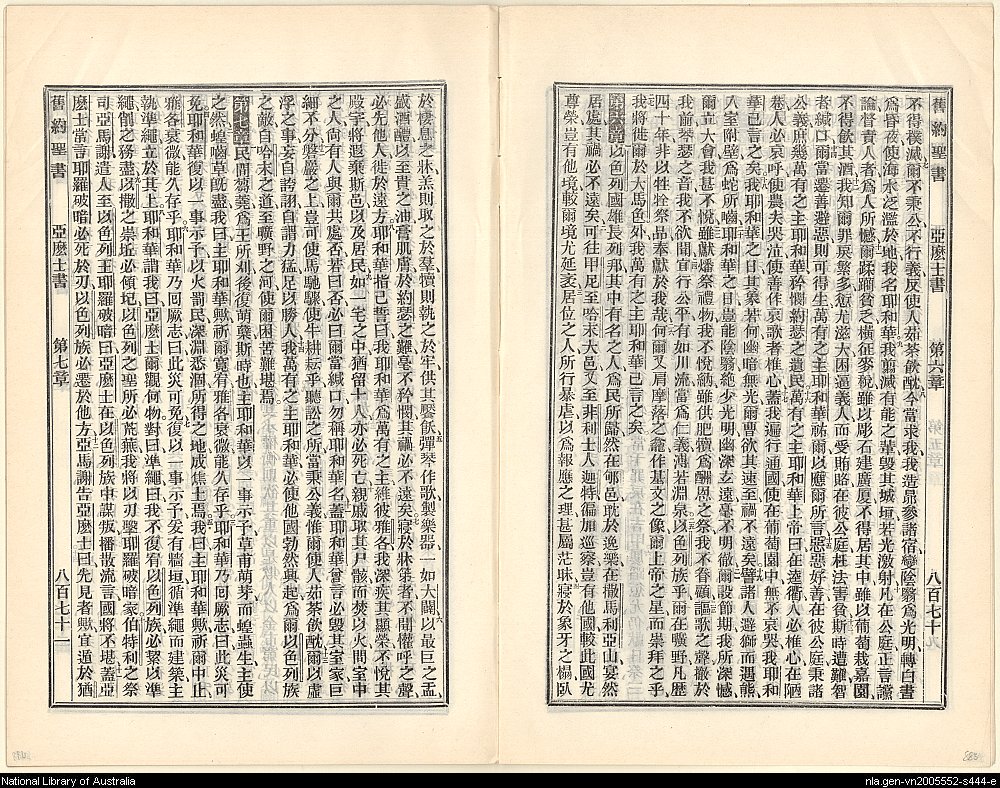 舊約聖書 亞麽士書 第六章 八百七十
不得撲滅爾不秉公不行義反使人茹荼飲酖今當求我我造昴參諸宿變陰翳爲光明轉白晝
爲昏夜使海水泛濫於地我名耶和華我翦滅有能之輩毀其城垣若光激射凡在公庭正言讜
論督責人者爲人所憾爾蹂躪貧乏橫征麥稅雖以彫石建廣厦不得居其中雖以葡萄栽嘉園
不得飲其酒我知爾罪戾繁多愆尤滋大困逼義人而受賄賂在彼公庭枉法害貧斯時遭難智
者緘口爾當爲善避惡則可得生萬有之主耶和華祐爾以應爾所言惡惡好善在彼公庭秉諸
公義庶幾萬有之主耶和華矜憫約瑟之遺民萬有之主耶和華上帝曰在逵衢人必椎心在陋
巷人必哀呼使農夫哭泣使善作哀歌者椎心蓋我遍行通國使在葡萄園中無不哀哭我耶和
華已言之矣我耶和華之日其暴若何幽暗無光爾曹欲其速至禍不遠矣譬諸人避獅而遇熊
入室附壁爲蛇所嚙耶和華之日豈能陰翳絶少光明幽深玄遠毫不明徹爾設節期我所深憾
爾立大會我甚不悅雖獻燔祭禮物我不悅納雖供肥犢爲酬恩之祭我不眷顧謳歌之聲徹於
我前琴瑟之音我不欲聞宜行公平有如川流當爲仁義濤若淵泉以色列族乎爾在曠野凡歷
四十年非以牲牷祭品奉獻於我哉何爾又肩摩落之龕作基文之像爾上帝之星而崇拜之乎
我將徙爾於大馬色外我萬有之主耶和華已言之矣
第六章 以色列國雄長列邦其中有名之人爲民所歸然在郇邑耽於逸樂在撒馬利亞山宴然
居處其禍必不遠矣可往甲尼至哈末大邑又至非利士人迦特徧加巡察豈有他國較此國尤
尊榮豈有他境較爾境尤延袤居位之人所行暴虐以爲報應之理甚屬茫昧寢於象牙之榻臥
於棲息之牀羔則取之於羣犢則執之於牢供其饜飫彈琴作歌製樂器一如大闢以最巨之盂
盛酒醴以至貴之油膏肌膚於約瑟之難毫不矜憫其禍必不遠矣寢於牀笫者不聞懽呼之聲
必先他人徙於遠方耶和華指己誓曰我耶和華爲萬有之主維彼雅各我深疾其顯榮不悅其
殿宇將遐棄斯邑以及居民如一宅之中猶留十人亦必死亡親戚取其尸骸而焚以火問室中
之人尚有人與爾共處否若曰否必曰爾當緘口勿稱耶和華名蓋耶和華曾言必毀其室家巨
細不分磐巖之上豈可使馬馳驟使牛耕耘乎聽訟之所當秉公義惟爾使人茹荼飲酖爾以虛
浮之事妄自誇詡自謂力猛足以勝人我萬有之主耶和華必使他國勃然興起爲爾以色列族
之敵自哈末之道至曠野之河使爾困苦難堪焉
第七章 民間芻蕘爲王所刈後復萌蘗斯時也主耶和華以一事示予草甫萌芽而蝗蟲生主使
之然蝗嚙草旣盡我曰主耶和華歟祈爾寛宥雅各衰微能久存乎耶和華乃回厥志曰此災可
免耶和華復以一事示予以火罰民深淵悉涸所得之地成焦土焉我曰主耶和華歟祈爾中止
雅各衰微能久存乎耶和華乃回厥志曰此災可免復以一事示予爰有牆垣循準繩而建築主
執準繩立於其上耶和華謂我曰亞麽士爾觀何物對曰準繩曰我不復宥以色列族必繫以準
繩創之務盡以撒之崇坵必傾圮以色列之聖所必荒蕪我將以刃擊耶羅破暗家伯特利之祭
司亞馬謝遣人至以色列王耶羅破暗曰亞麽士在以色列族中謀叛播散流言國將不堪蓋亞
麽士嘗言耶羅破暗必死於刃以色列族必遷於他方亞馬謝告亞麽士曰先見者歟宜遁於猶
舊約聖書 亞麽士書 第七章 八百七十一
National Library of Australia
nla.gen-vn2005552-s444-e